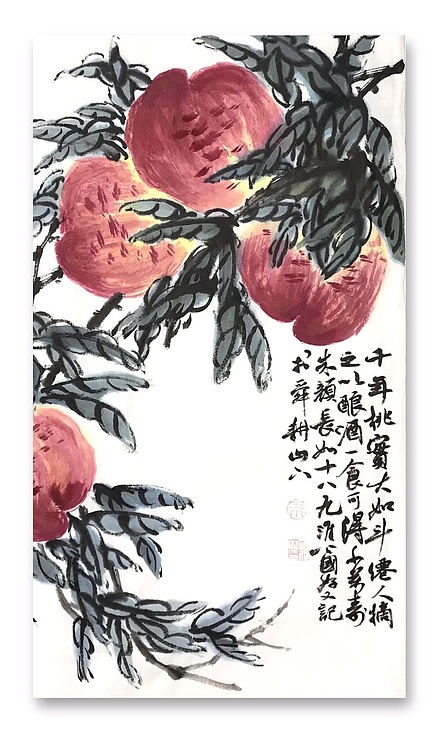 千年桃實大如斗僊人摘
之以釀酒一食可得千萬壽
朱顏長如十八九
國
又記
於舜耕山